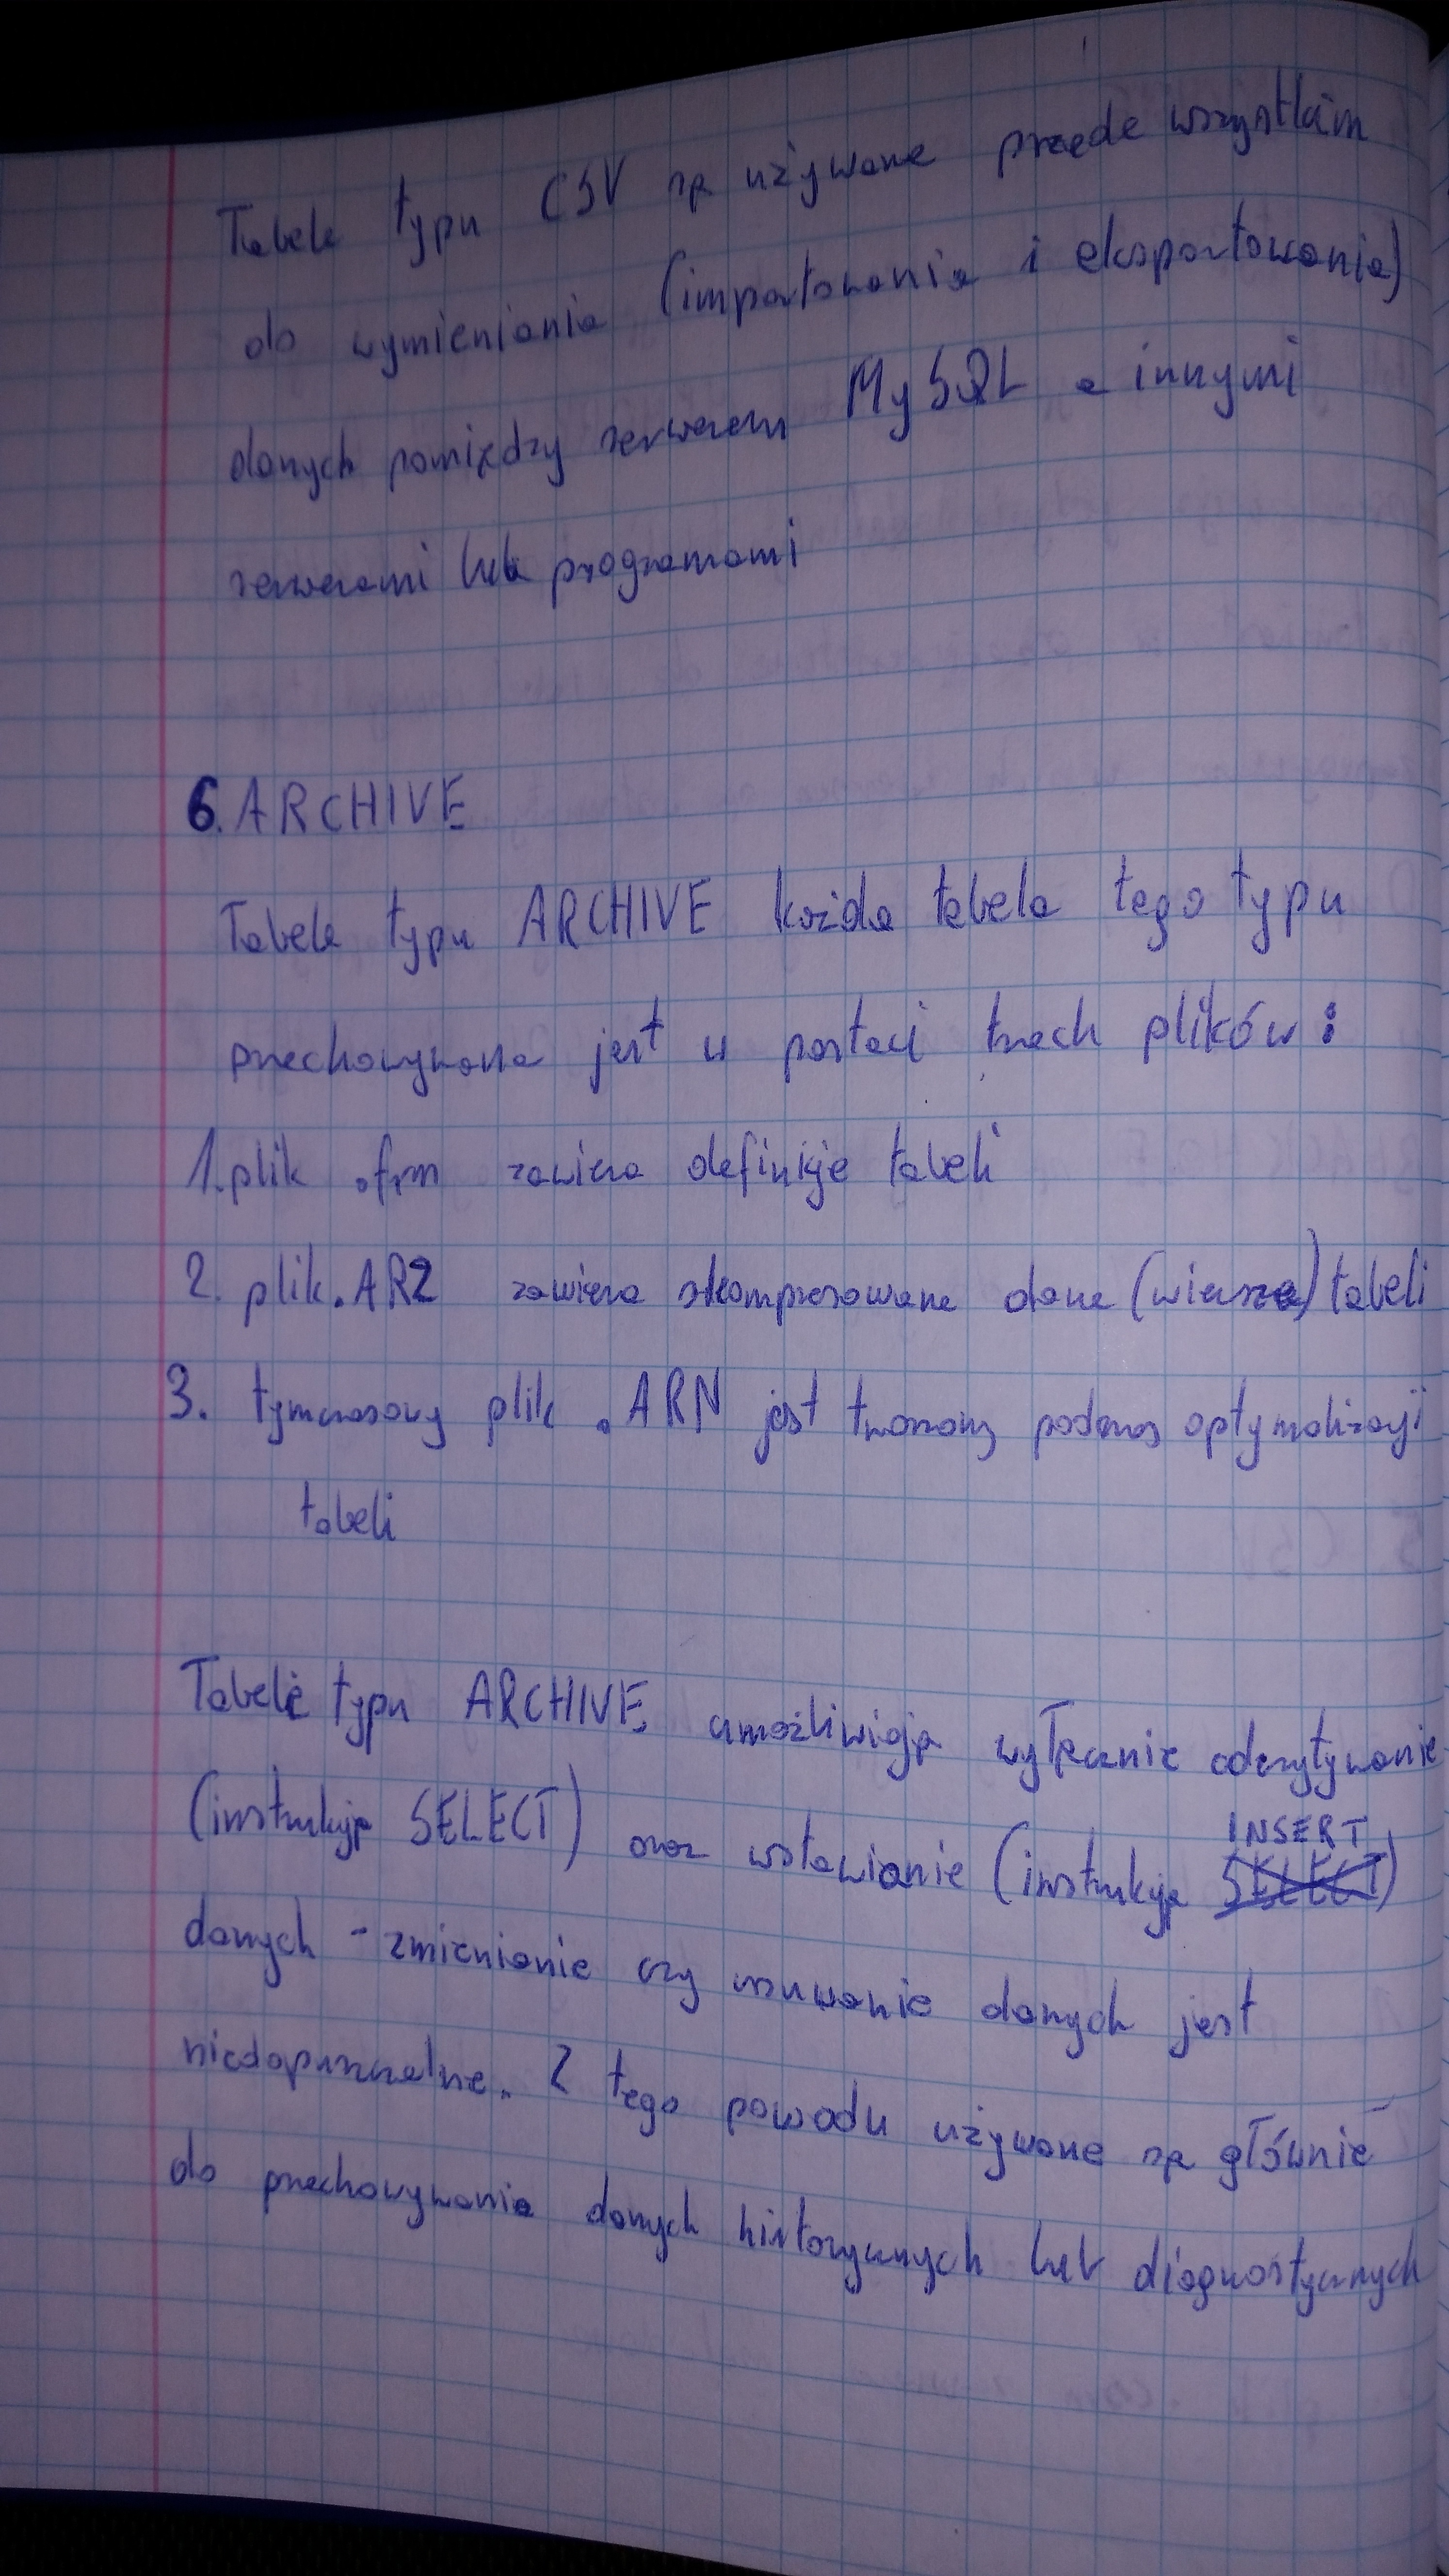 Tabele typu CSV są używane przede wszystkim
do wymieniania (importowania i eksportowania)
danych pomiędzy serwerem MySQL a innymi
serwerami lub programami
6. ARCHIVE
Tabele typu ARCHIVE każda tabela tego typu
przechowywana jest w postaci trzech plików:
1. plik .frm zawiera definicje tabeli
2. plik .ARZ zawiera skompresowane dane (wiersze) tabeli
3. tymczasowy plik .ARN jest tworzony podczas optymalizacji
tabeli
Tabele typu ARCHIVE umożliwiają wyłącznie odczytywanie
(instrukcją SELECT) oraz wstawianie (instrukcją INSERT ~~SELECT~~)
danych - zmienianie czy usuwanie danych jest
niedopuszczalne. Z tego powodu używane są głównie
do przechowywania danych historycznych lub diagnostycznych